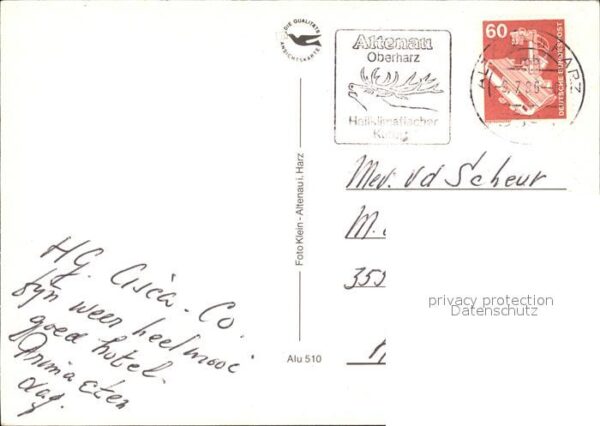 HG. Cisca - Co.
fyn weer heel mooi
goed hotel.
Prima eten
dag.
DIE QUALITÄTS ANSICHTSKARTE
Altenau
Oberharz
Heilklimatischer
Kurort
60
DEUTSCHE BUNDESPOST
HARZ
Foto Klein - Altenau i. Harz
Alu 510
Mev. vd Scheur
M.
privacy protection
Datenschutz